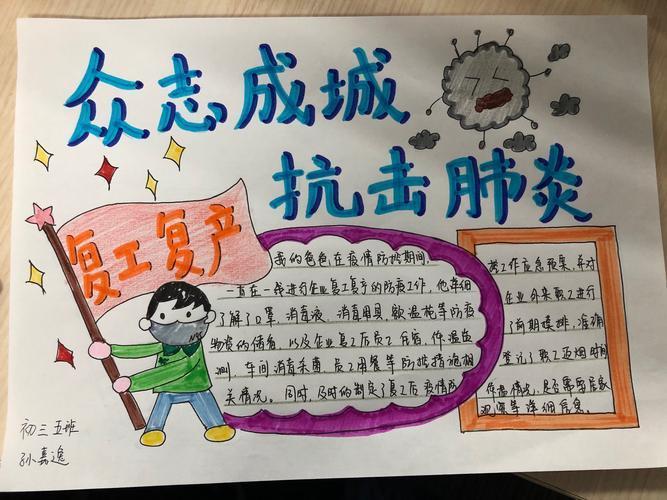 众志成城
抗击肺炎
复工复产
我的爸爸在疫情防控期间,
一直在一线进行企业复工复产的防疫工作,他详细
了解了口罩、消毒液、消毒用具、额温枪等防疫
物资的储备,以及企业复工后员工宿舍,体温检
测、车间消毒杀菌、员工用餐等防控措施相
关情况。同时,及时的制定了复工后疫情防
控工作应急预案,并对
企业外来职工进行
了前期摸排,准确
登记了职工返烟时间
、作息情况、是否需要居家
观察等详细信息。
初三五班
孙嘉逸